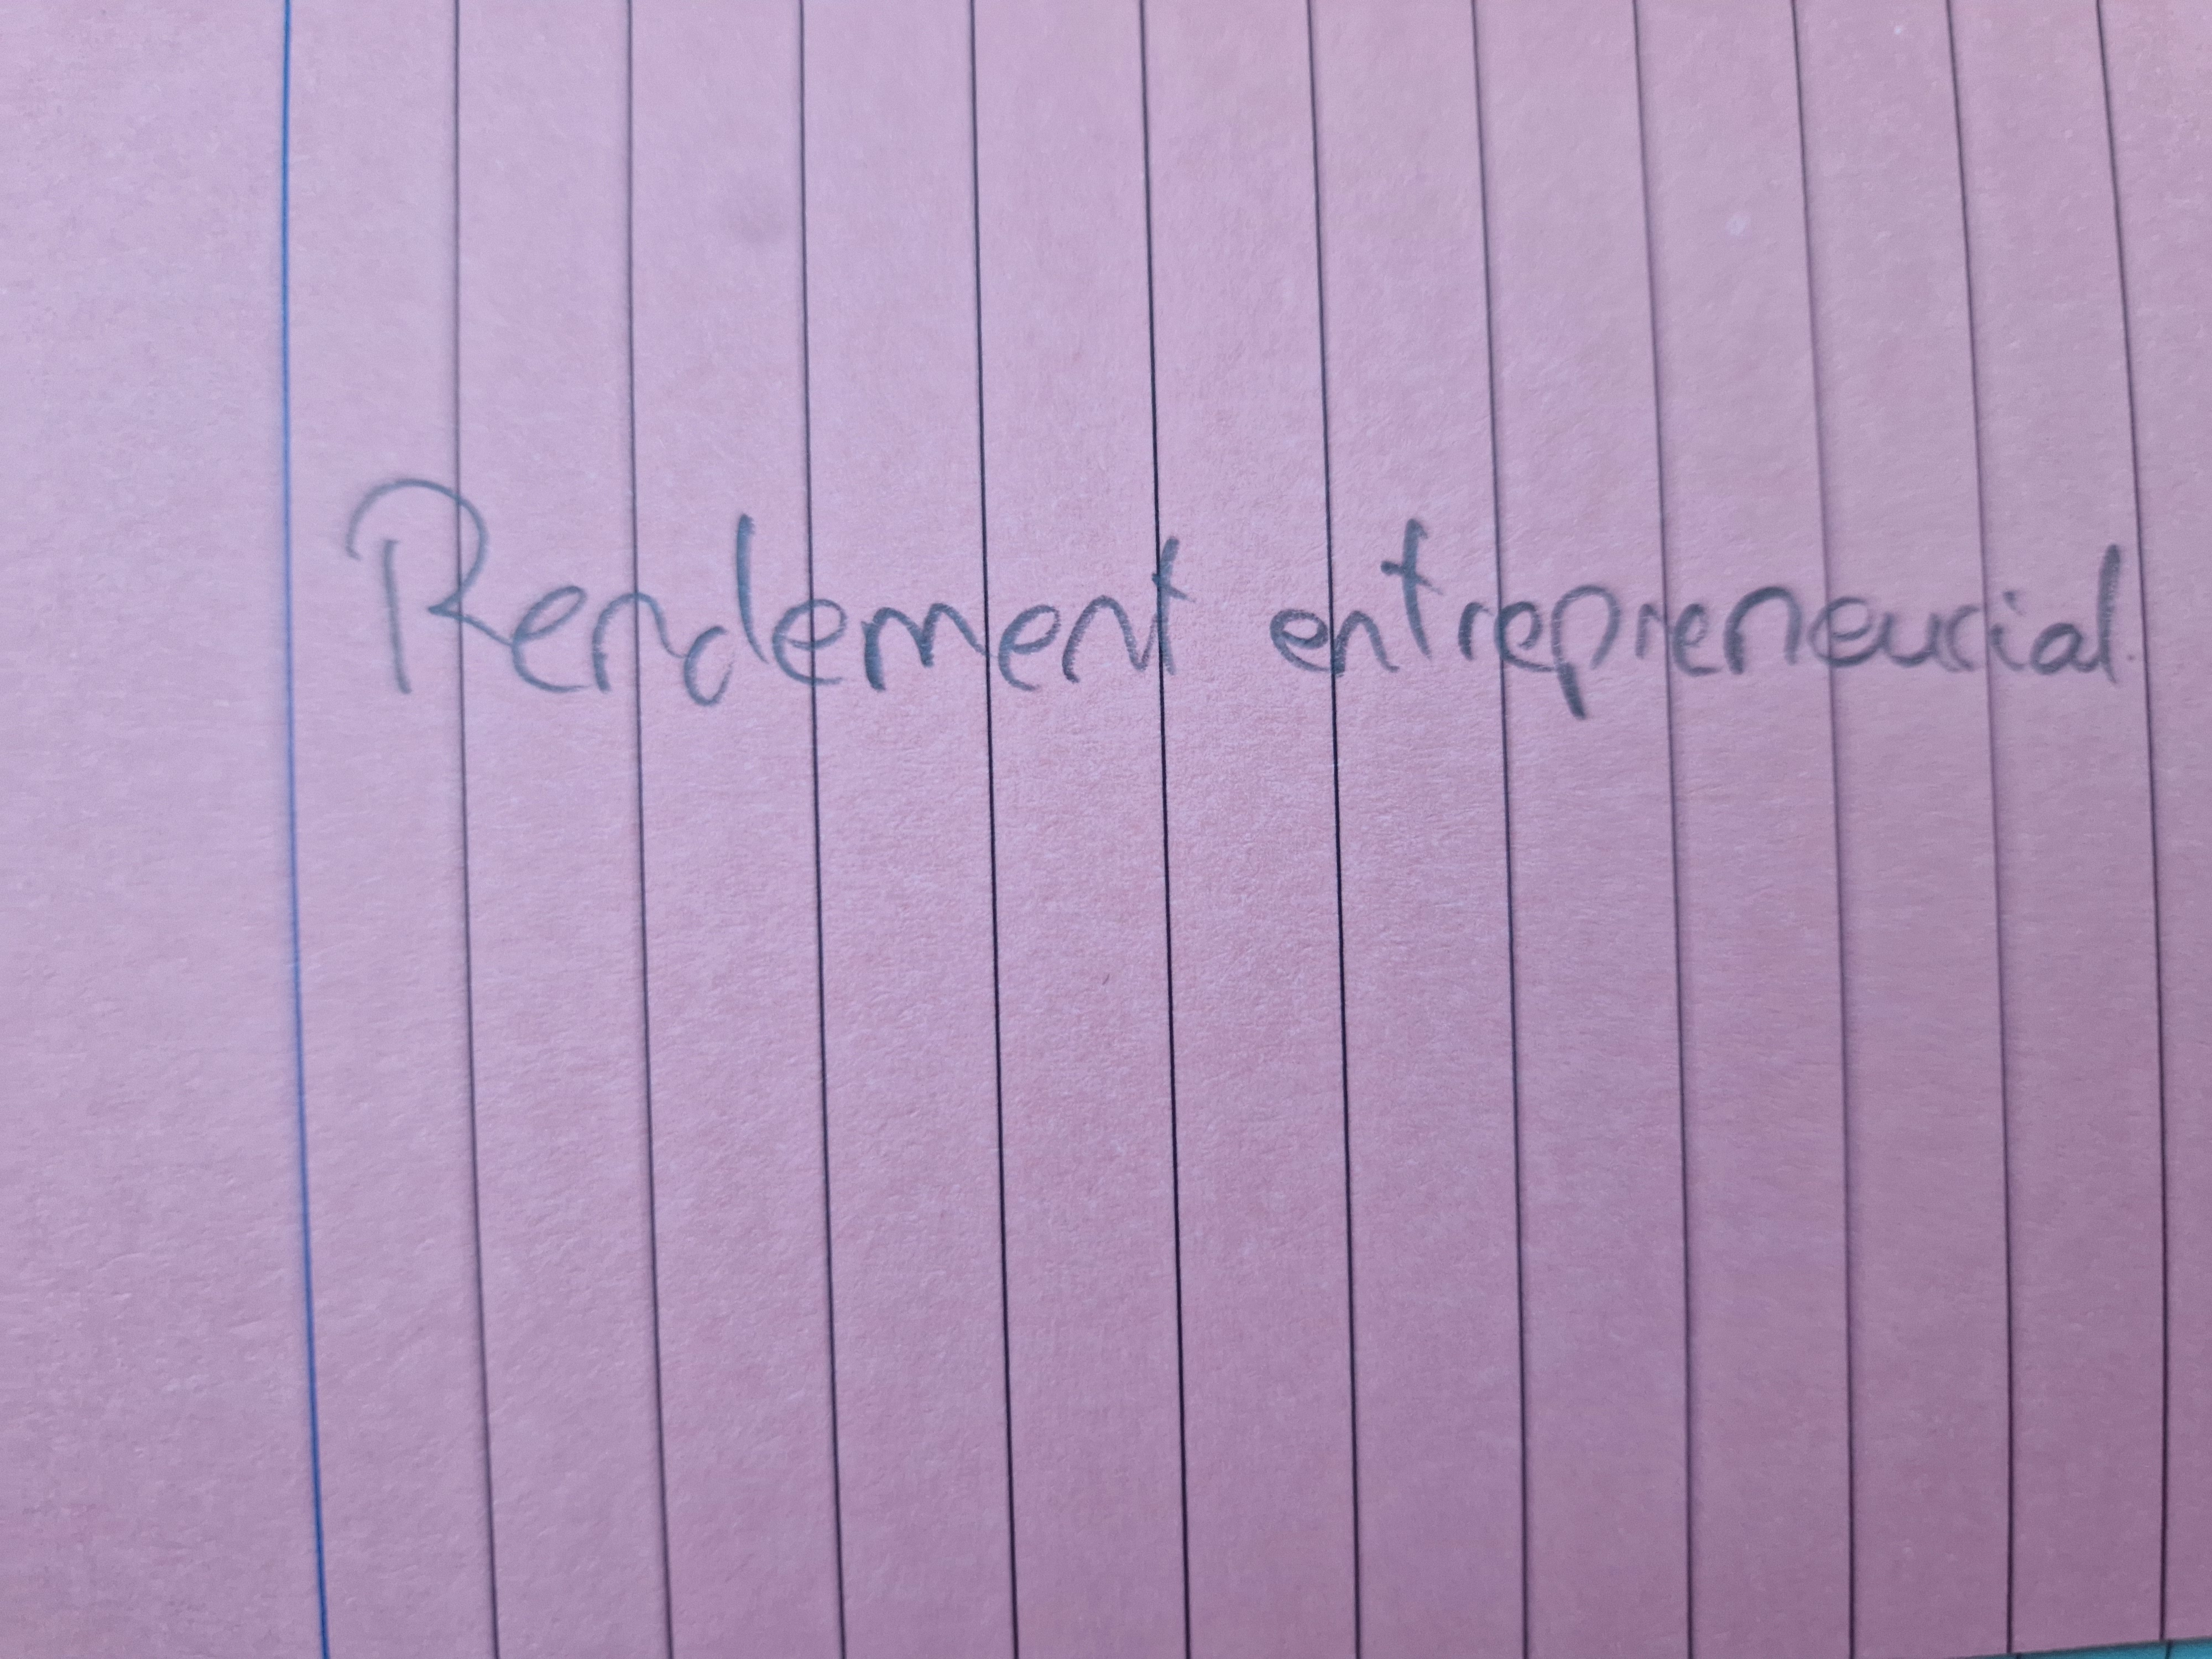 Rendement entrepreneurial